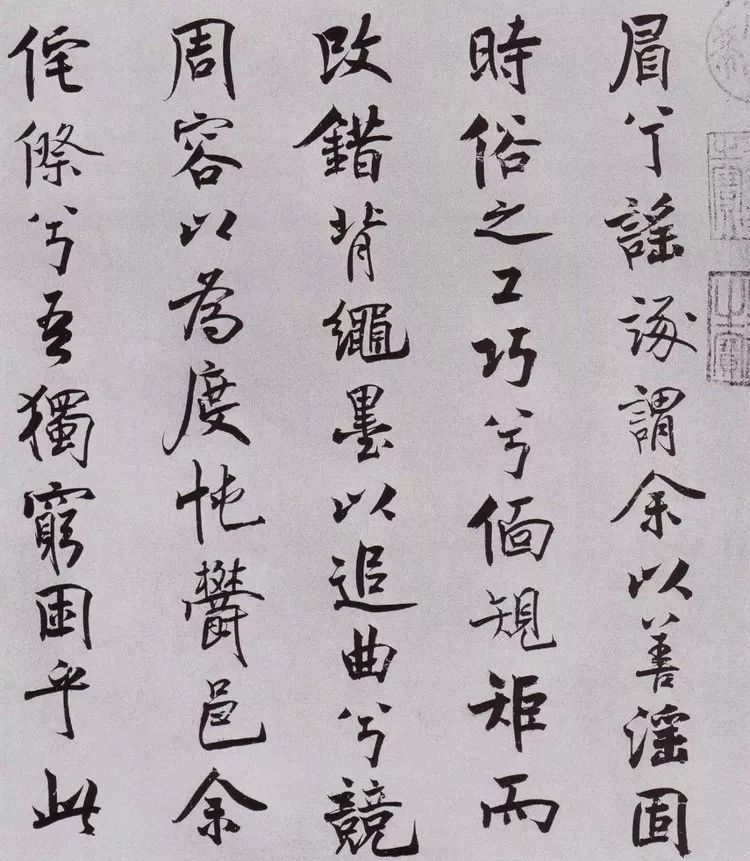 眉兮謡諑謂余以善淫固
時俗之工巧兮偭規矩而
改錯背繩墨以追曲兮競
周容以為度忳鬱邑余
侘傺兮吾獨窮困乎此